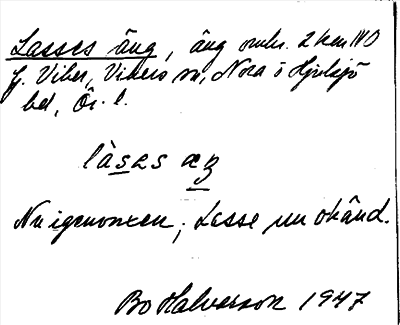 Lasses äng, äng omkr. 2 km NO
g. Viker, Vikers sn, Nora o Hjulsjö
bd, Ör. l.
làsɛs æŋ
Nu igenvuxen; Lasse nu okänd.
Bo Halvarsson 1947